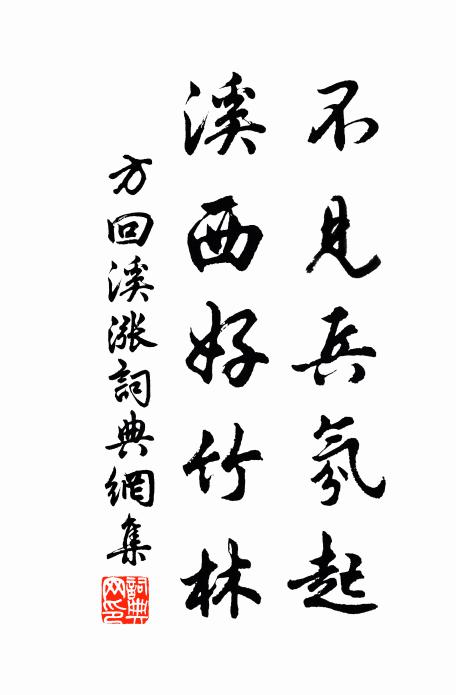 不見兵氛起
溪西好竹林
方回溪漲詞典網集